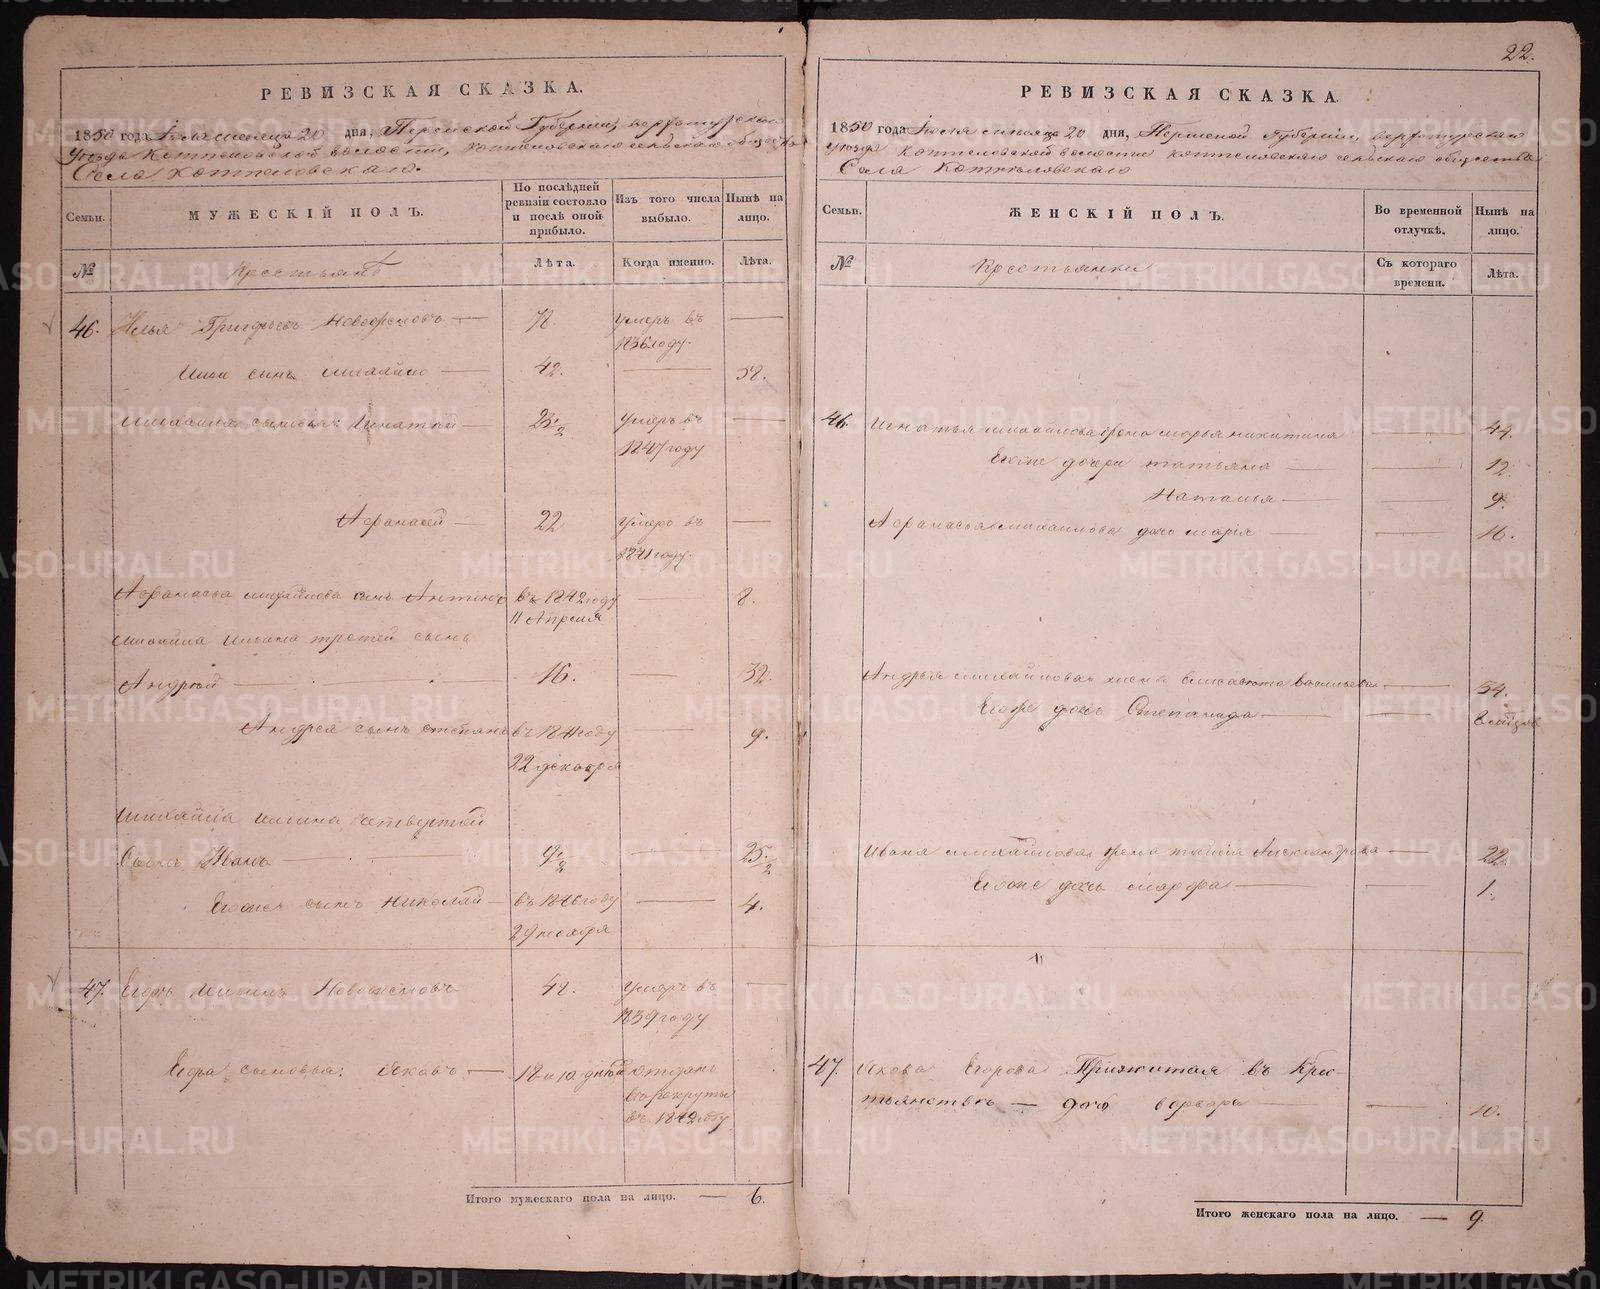 РЕВИЗСКАЯ СКАЗКА.
1850 года Іюля месяца 20 дня, Пермской Губерніи, Верхотурскаго
Уезда Коптеловской волости, Коптеловскаго сельскаго общества
Села Коптеловскаго.
Семьи.
МУЖЕСКІЙ ПОЛЪ.
По послѣдней ревизіи состояло и послѣ оной прибыло.
Изъ того числа выбыло.
Нынѣ на лицо.
№
Крестьянъ
Лѣта.
Когда именно.
Лѣта.
46. Илья Григорьевъ — 78 умеръ въ 1836 году —
Ильи сынъ Михайло — 42. — 58.
Михайла сыновья Игнатій — 23 1/2 умеръ въ 1847 году —
Афанасей — 22 умеръ въ 1841 году —
Афанасья Михайлова сынъ Антонъ въ 1842 году 11 Апреля — 8.
Михайла Ильина третей сынъ
Андрей — 16. — 32.
Андрея сынъ Степанъ въ 1841 году 22 декабря — 9.
Михайла Ильина четвертой
Сынъ Иванъ — 9 1/2 — 25 1/2
Егоже сынъ Николай — въ 1846 году — 4.
47. Егоръ Ильинъ 42. Умеръ въ 1839 году —
Егора сыновья: Яковъ — 18 отданъ в рекруты въ 1842 году
Итого мужескаго пола на лицо. — 6.
22.
РЕВИЗСКАЯ СКАЗКА.
1850 года Іюля месяца 20 дня, Пермской Губерніи, Верхотурскаго
Уезда Коптеловской волости Коптеловскаго сельскаго общества
Села Коптеловскаго
Семьи.
ЖЕНСКІЙ ПОЛЪ.
Во временной отлучкѣ.
Нынѣ на лицо.
№
Крестьянки
Съ котораго времени.
Лѣта.
46. Игнатья Михайлова жена Марья Никитина — 44.
Егоже дочери Татьяна — — 12
Наталья — — 9.
Афанасья Михайлова дочь Марія — — 16.
Андрея Михайлова жена Елисавета Васильева — 34.
Егоже дочь Степанида — —
Ивана Михайлова жена Таисія Александрова — 22.
Егоже дочь Марфа — — 1.
47. Якова Егорова Прижитая въ Крес-
тьянствѣ — дочь Варвара — — 10.
Итого женскаго пола на лицо. — 9.